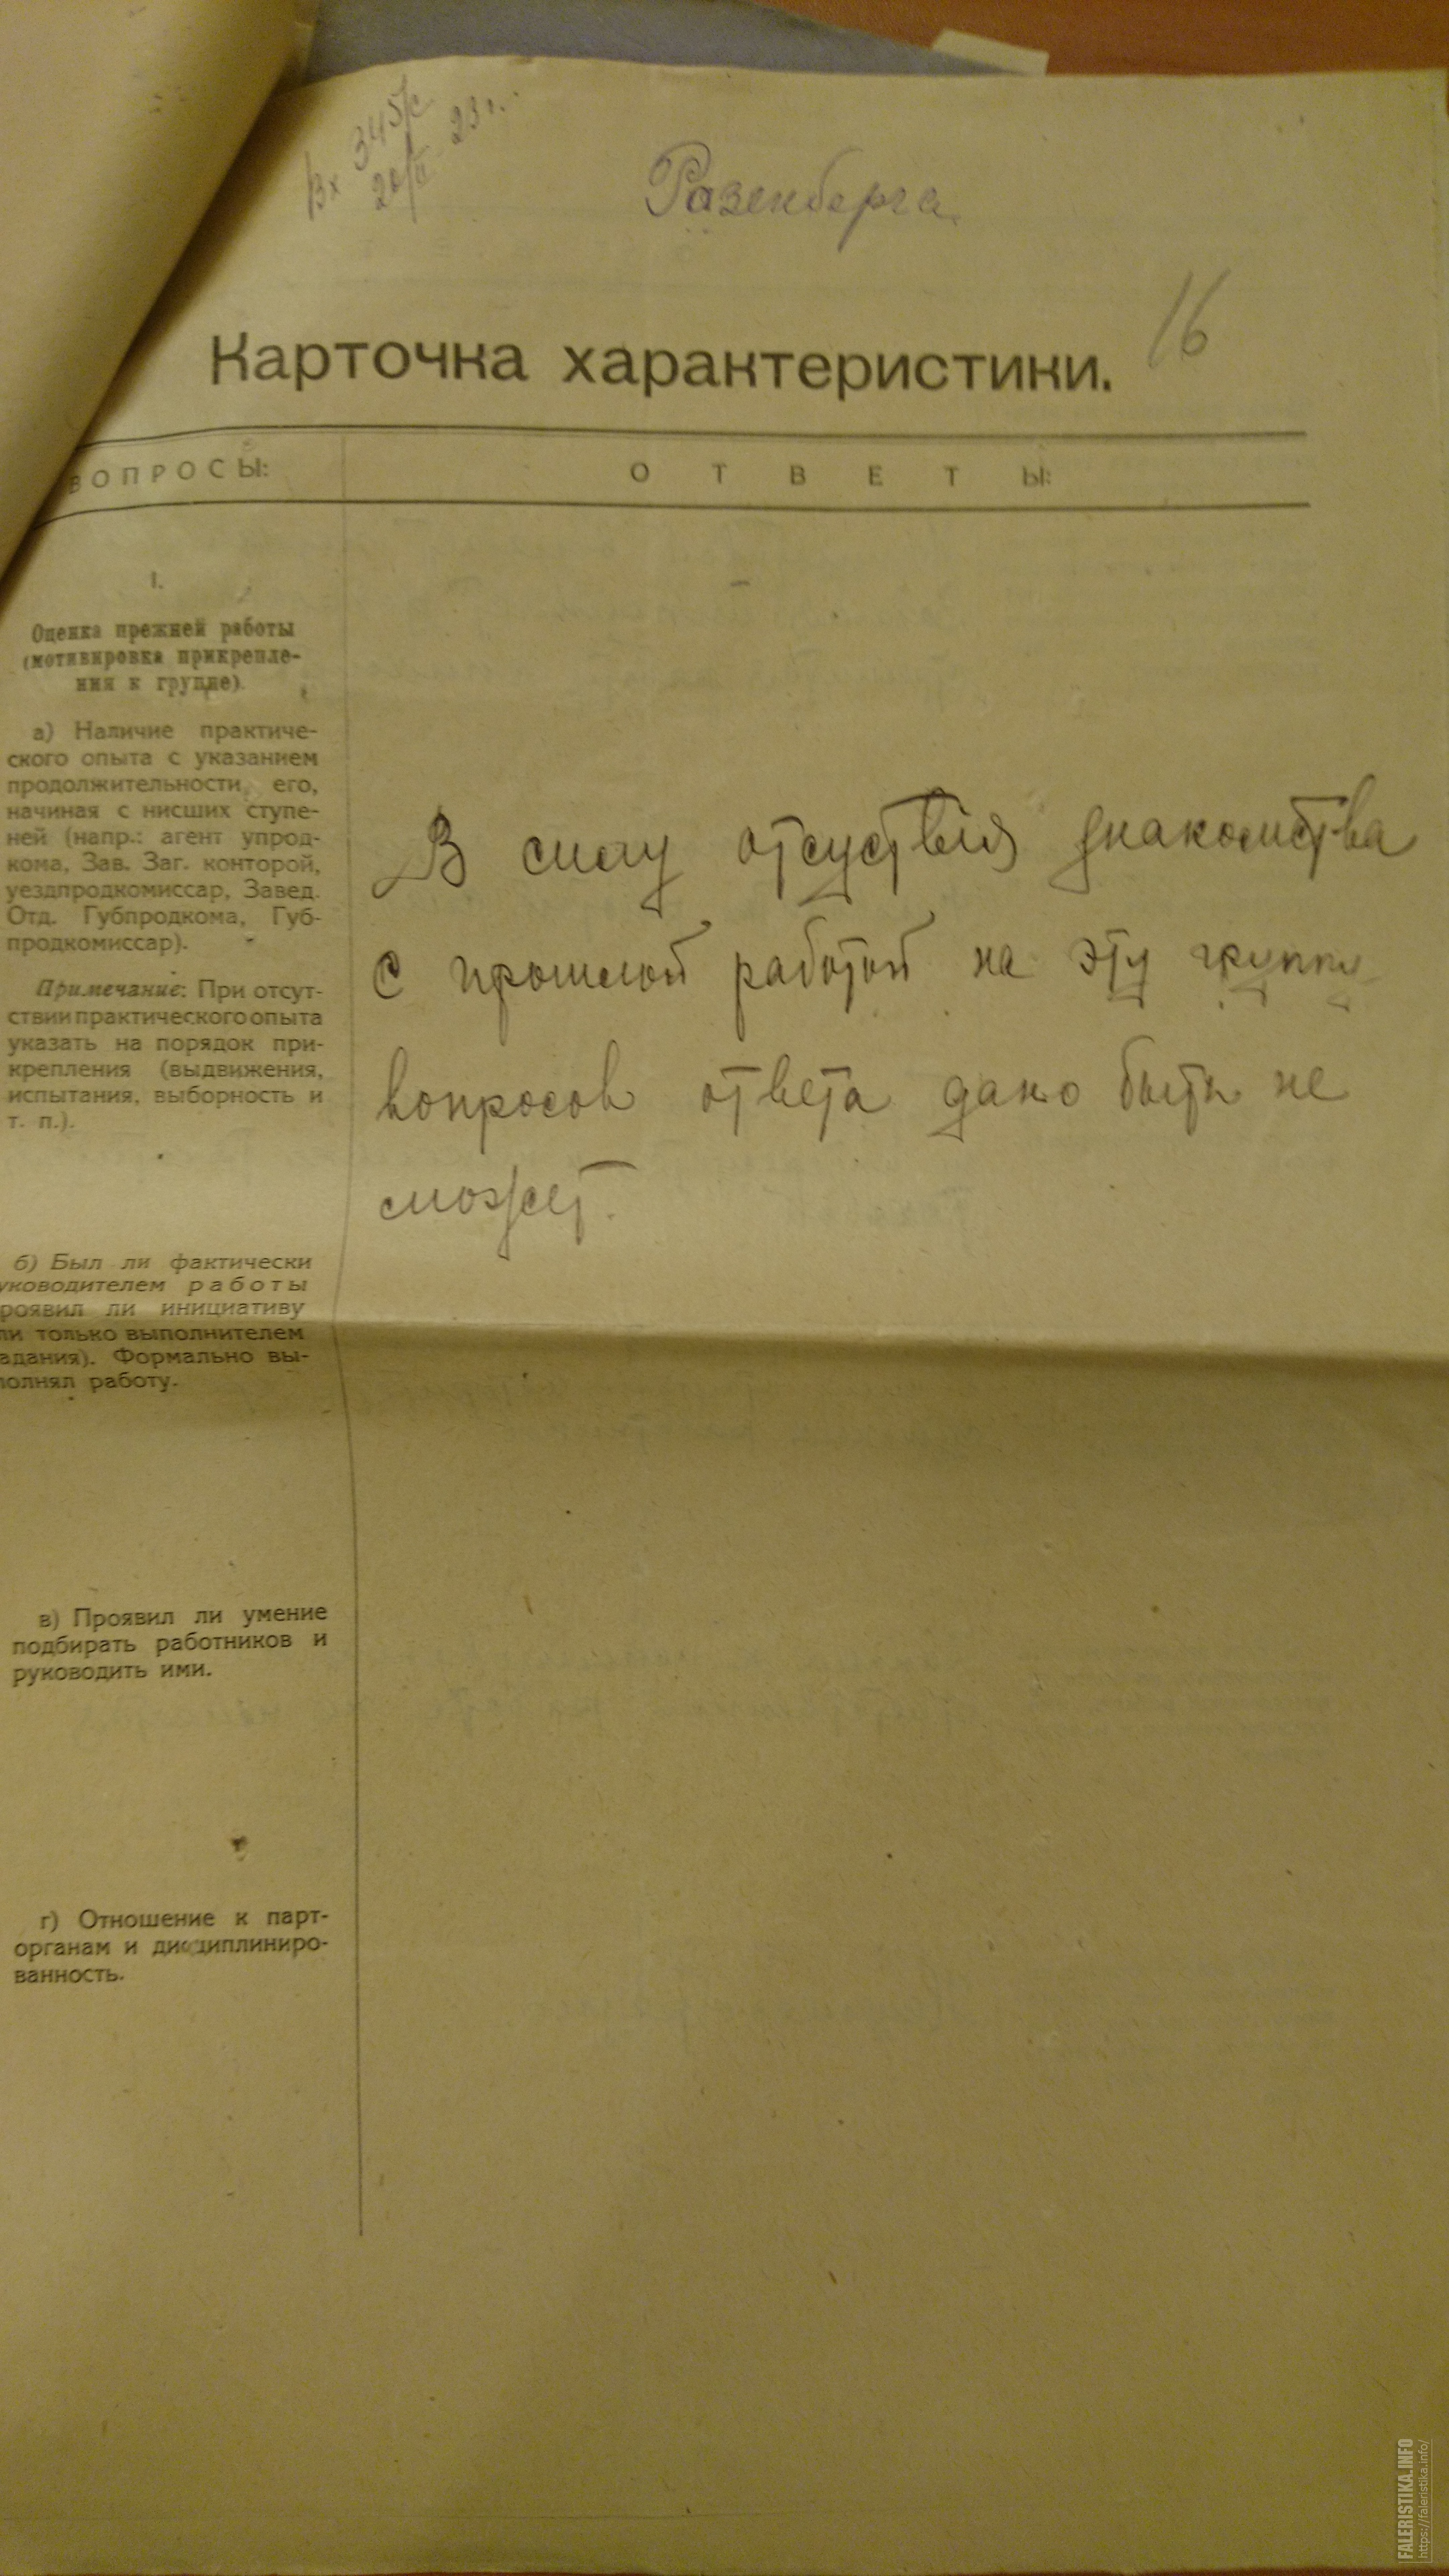 Вх 345/с
20/II 23 г.
Разенберга
16
Карточка характеристики.
ВОПРОСЫ:
ОТВЕТЫ:
I.
Оценка прежней работы
(мотивировка прикрепле-
ния к группе).
а) Наличие практиче-
ского опыта с указанием
продолжительности его,
начиная с нисших ступе-
ней (напр.: агент упрод-
кома, Зав. Заг. конторой,
уездпродкомиссар, Завед.
Отд. Губпродкома, Губ-
продкомиссар).
Примечание: При отсут-
ствии практического опыта
указать на порядок при-
крепления (выдвижения,
испытания, выборность и
т. п.).
В силу отсуствія знакомства
с прошлой работой на эту группу
вопросов ответа дано быть не
может.
б) Был ли фактически
уководителем работы
роявил ли инициативу
ли только выполнителем
адания). Формально вы-
полнял работу.
в) Проявил ли умение
подбирать работников и
руководить ими.
г) Отношение к парт-
органам и дисциплиниро-
ванность.
FALERISTIKA.INFO
https://faleristika.info/